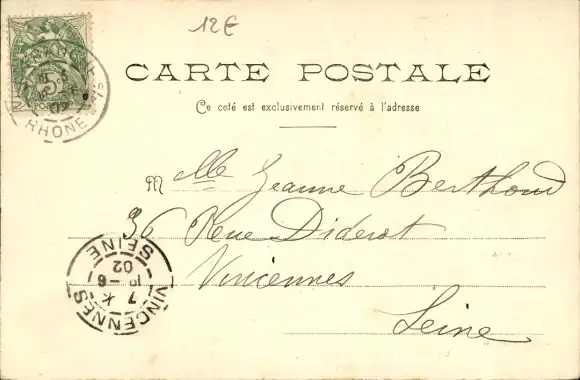 12€
CARTE POSTALE
Ce coté est exclusivement réservé à l'adresse
M lle Jeanne Berthoud
36 Rue Diderot
Vincennes
Seine
RHONE
POSTES
VINCENNES
7 K
10 - 6
02
SEINE